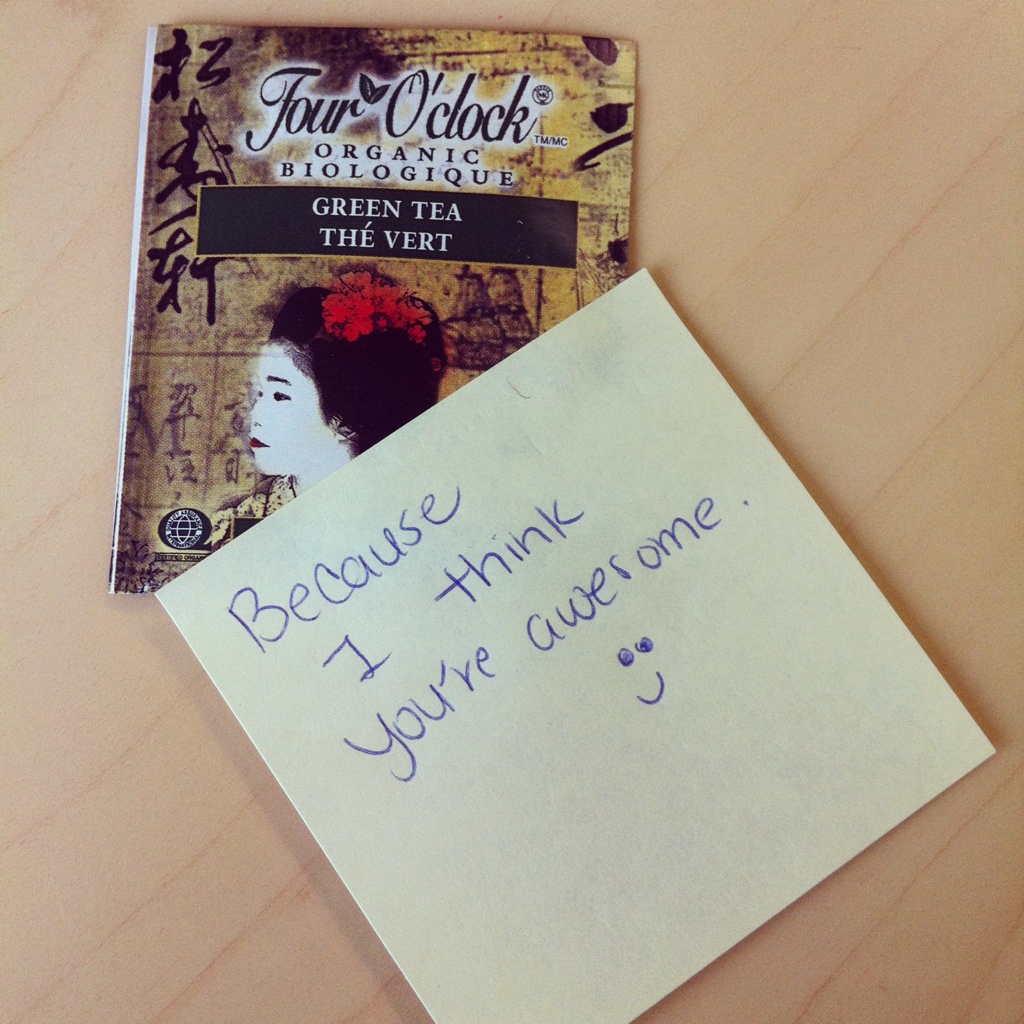 Four O'clock
TM/MC
ORGANIC
BIOLOGIQUE
GREEN TEA
THÉ VERT
Because
I think
you're awesome.